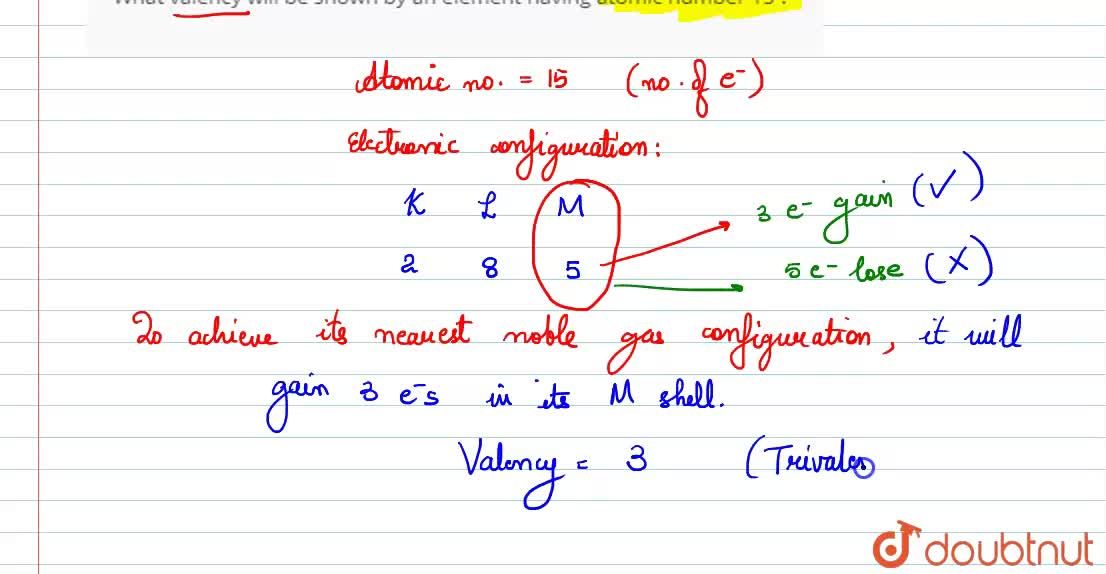 What valency will be shown by an element having atomic number 15 ?
Atomic no. = 15 (no. of e⁻)
Electronic configuration:
K L M
3 e⁻ gain (✓)
2 8 5
5 e⁻ lose (X)
To achieve its nearest noble gas configuration, it will
gain 3 e⁻s in its M shell.
Valency = 3 (Trivalen
doubtnut